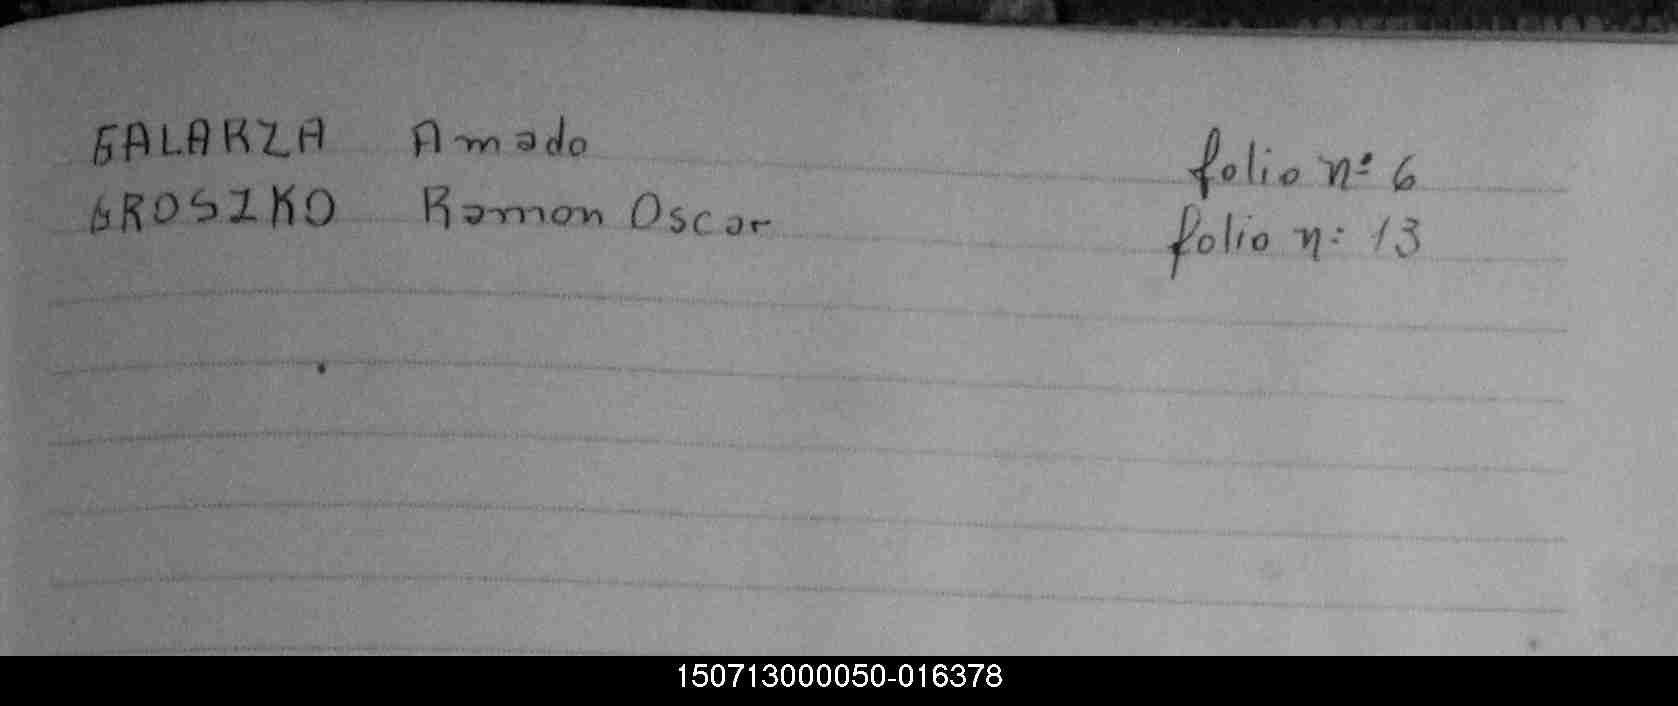 GALARZA Amado folio nº 6
GROSZKO Ramon Oscar folio n: 13
150713000050-016378